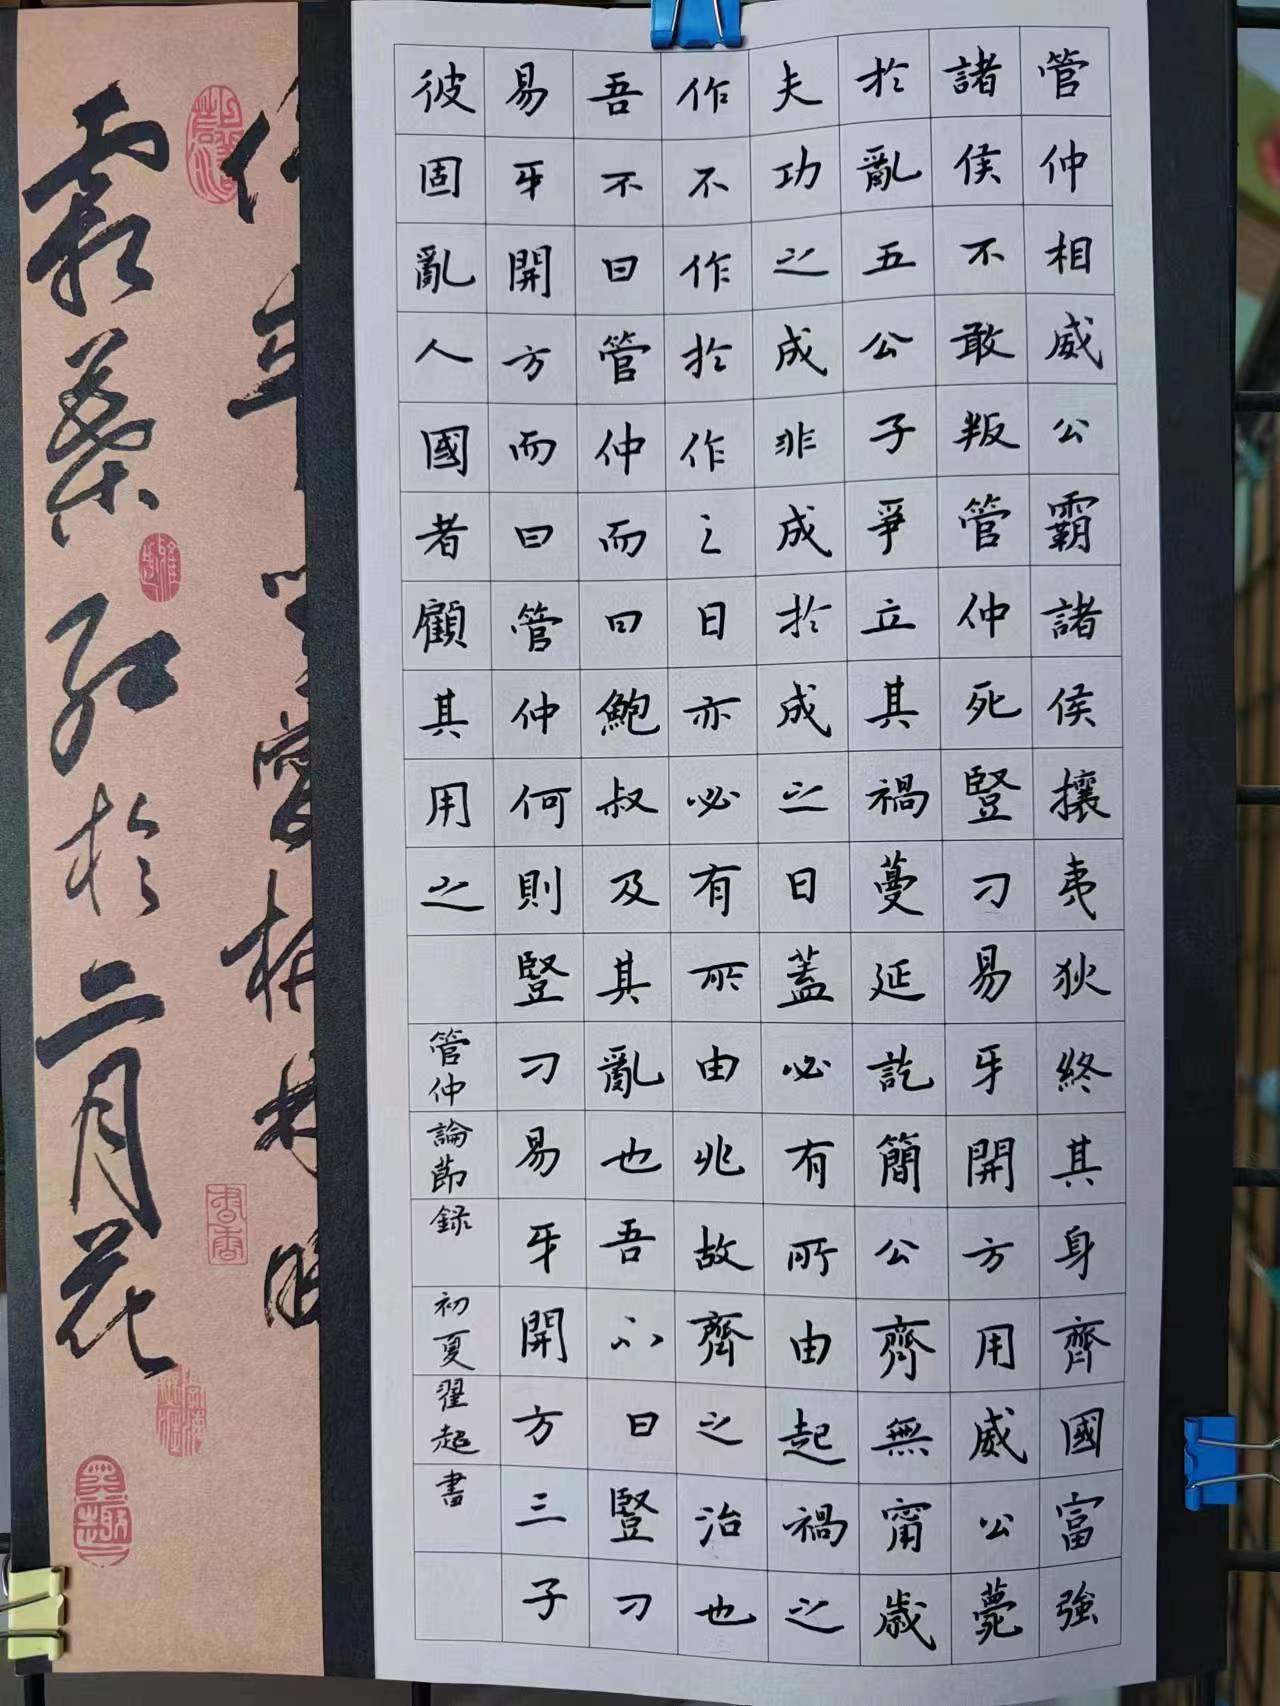 管仲相威公霸諸侯攘夷狄終其身齊國富強
諸侯不敢叛管仲死豎刁易牙開方用威公薨
於亂五公子爭立其禍蔓延訖簡公齊無甯歲
夫功之成非成於成之日蓋必有所由起禍之
作不作於作之日亦必有所由兆故齊之治也
吾不曰管仲而曰鮑叔及其亂也吾不曰豎刁
易牙開方而曰管仲何則豎刁易牙開方三子
彼固亂人國者顧其用之
管仲論節録 初夏翟超書
霜葉紅於二月花